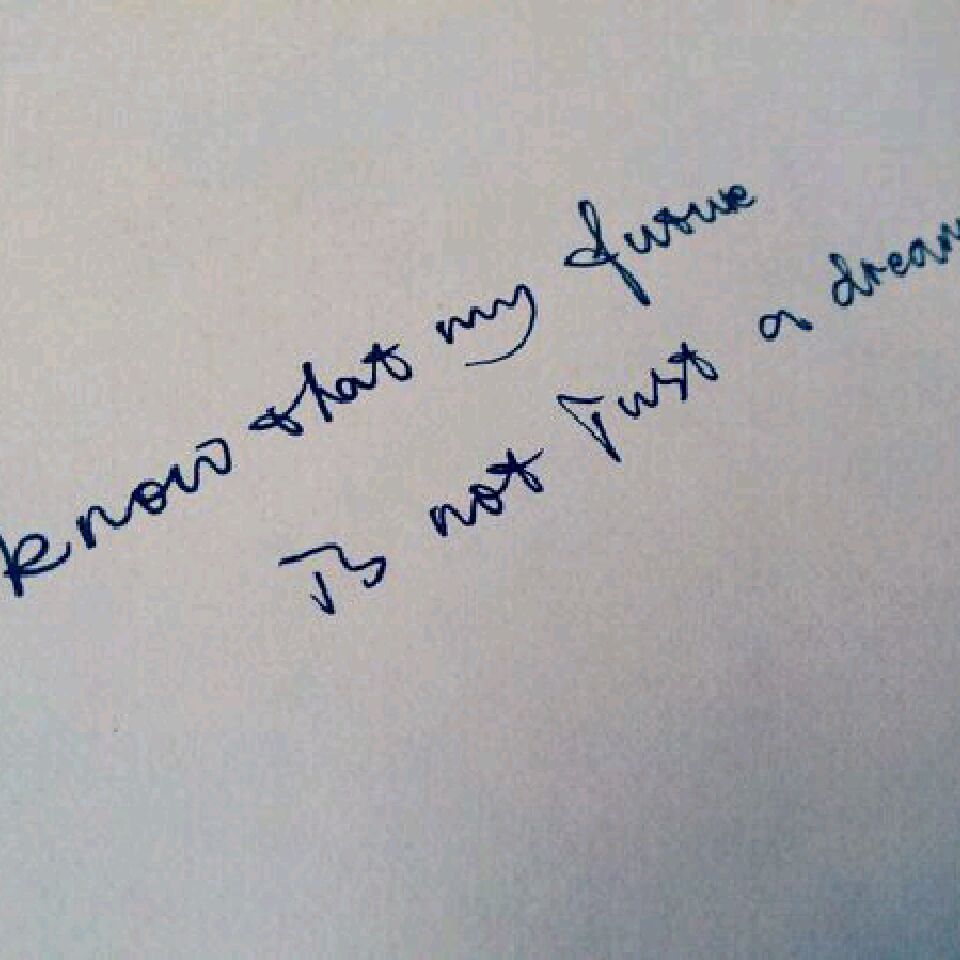 know that my future
Is not Just a dream